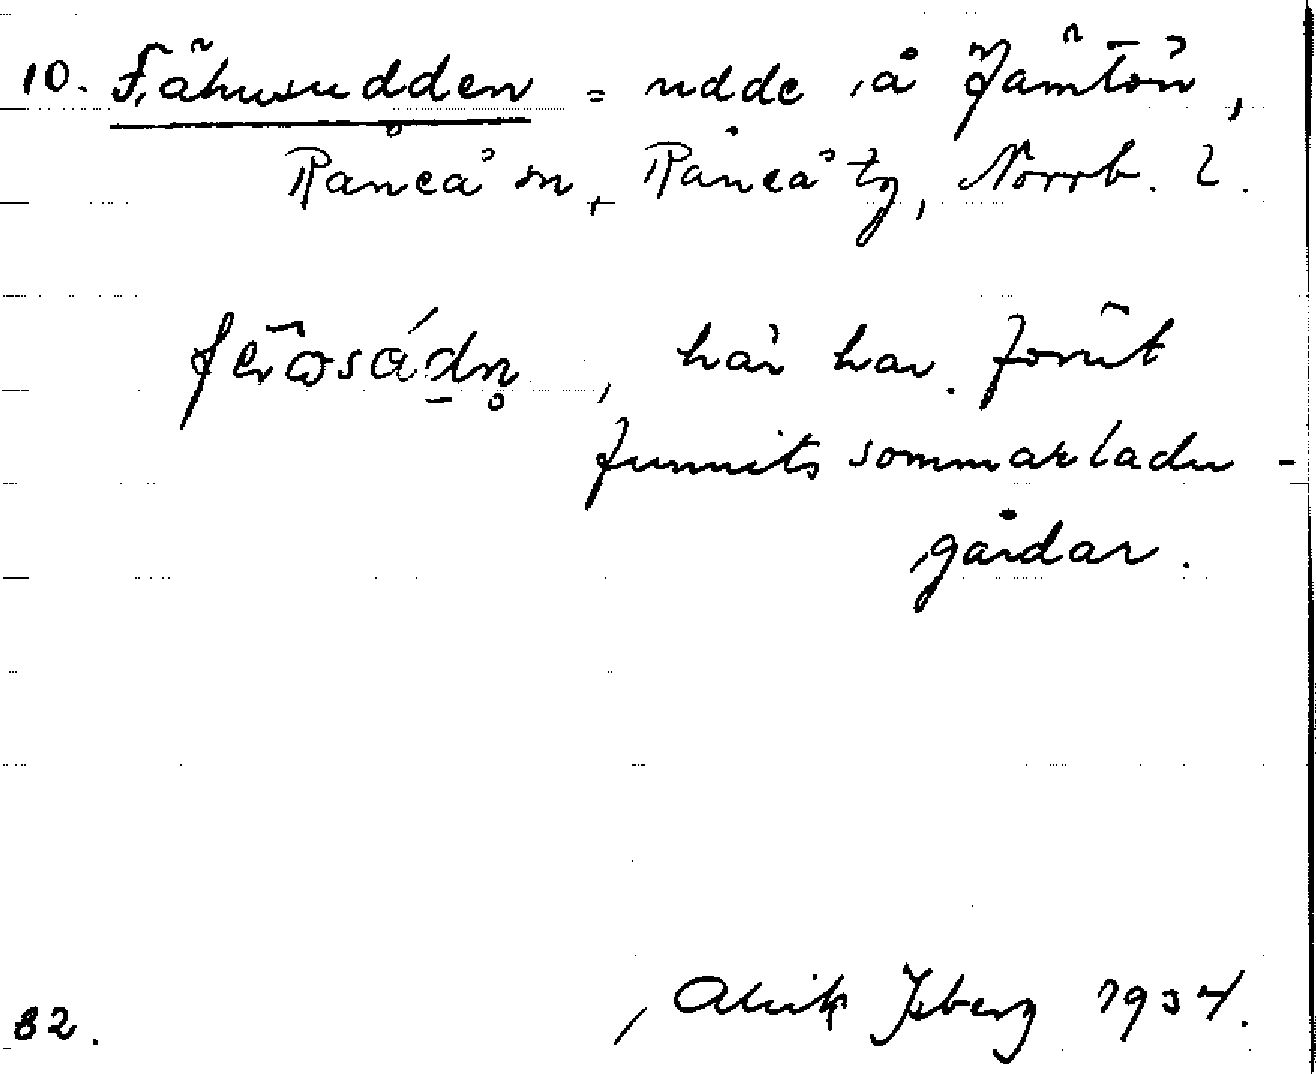 10. Fähusudden = udde å Jämtön,
Råneå sn, Råneå tg, Norrb. l.
här har förut
funnits sommarladu-
gårdar.
Alrik Isberg 1934.
82.